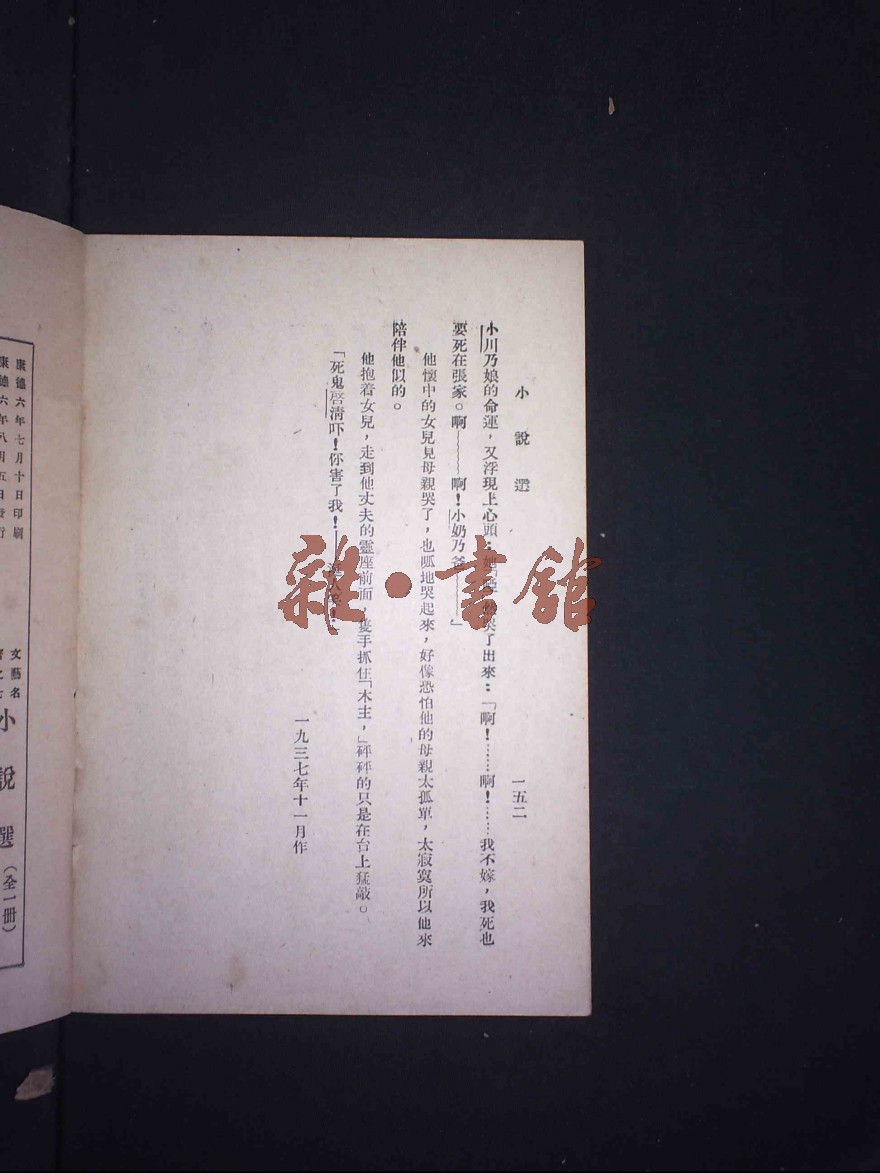 小說選
一五二
小川乃娘的命運，又浮現上心頭：她
哭了出來：「啊！……啊！……我不嫁，我死也
要死在張家。啊~~~~~啊！小奶乃爸」
他懷中的女兒見母親哭了，也呱地哭起來，好像恐怕他的母親太孤單，太寂寞所以他來
陪伴他似的。
他抱着女兒，走到他丈夫的靈座前面，隻手抓住「木主，」砰砰的只是在台上猛敲。
「死鬼啓淸吓！你害了我！
一九三七年十一月作
雜·書館
康德六年七月十日印刷
康德六年八月五日發行
文藝名
小說選（全一冊）